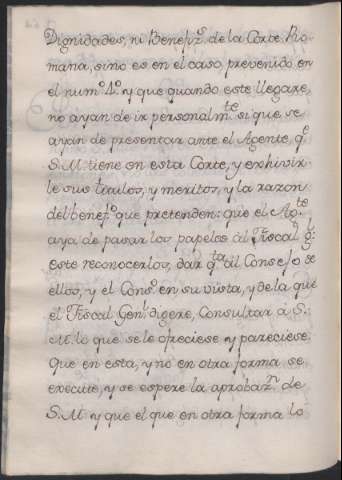 Dignidades, ni Benefz.º de la Corte Ro-
mana, sino es en el caso prevenido en
el num.º 4.º y que quando este llegare,
no ayan de ir personalm.te si que se
ayan de presentar ante el Agente, q.e
S. M. tiene en esta Corte, y exhivir
le sus titulos, y meritos, y la razon
del benef.º que pretenden: que el Ag.te
aya de pasar los papeles al Fiscal q.e
este reconocerlos, dar q.ta al Consejo se
ellos, y el Cons.º en su vista, y de la que
el Fiscal Gen.l digere, Consultar á S.
M. lo que se le ofreciese y pareciese.
Que en esta, y no en otra forma se
execute, y se espere la aprobaz.n de
S. M. y que el que en otra forma lo